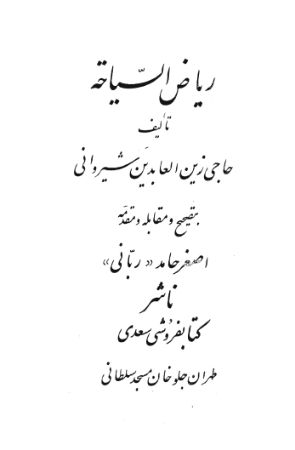 ریاض السّیاحة
تألیف
حاجی زین العابدین شیروانی
بتصحیح و مقابله و مقدّمه
اصغر حامد « ربّانی »
ناشر
کتابفروشی سعدی
طهران جلوخان مسجد سلطانی